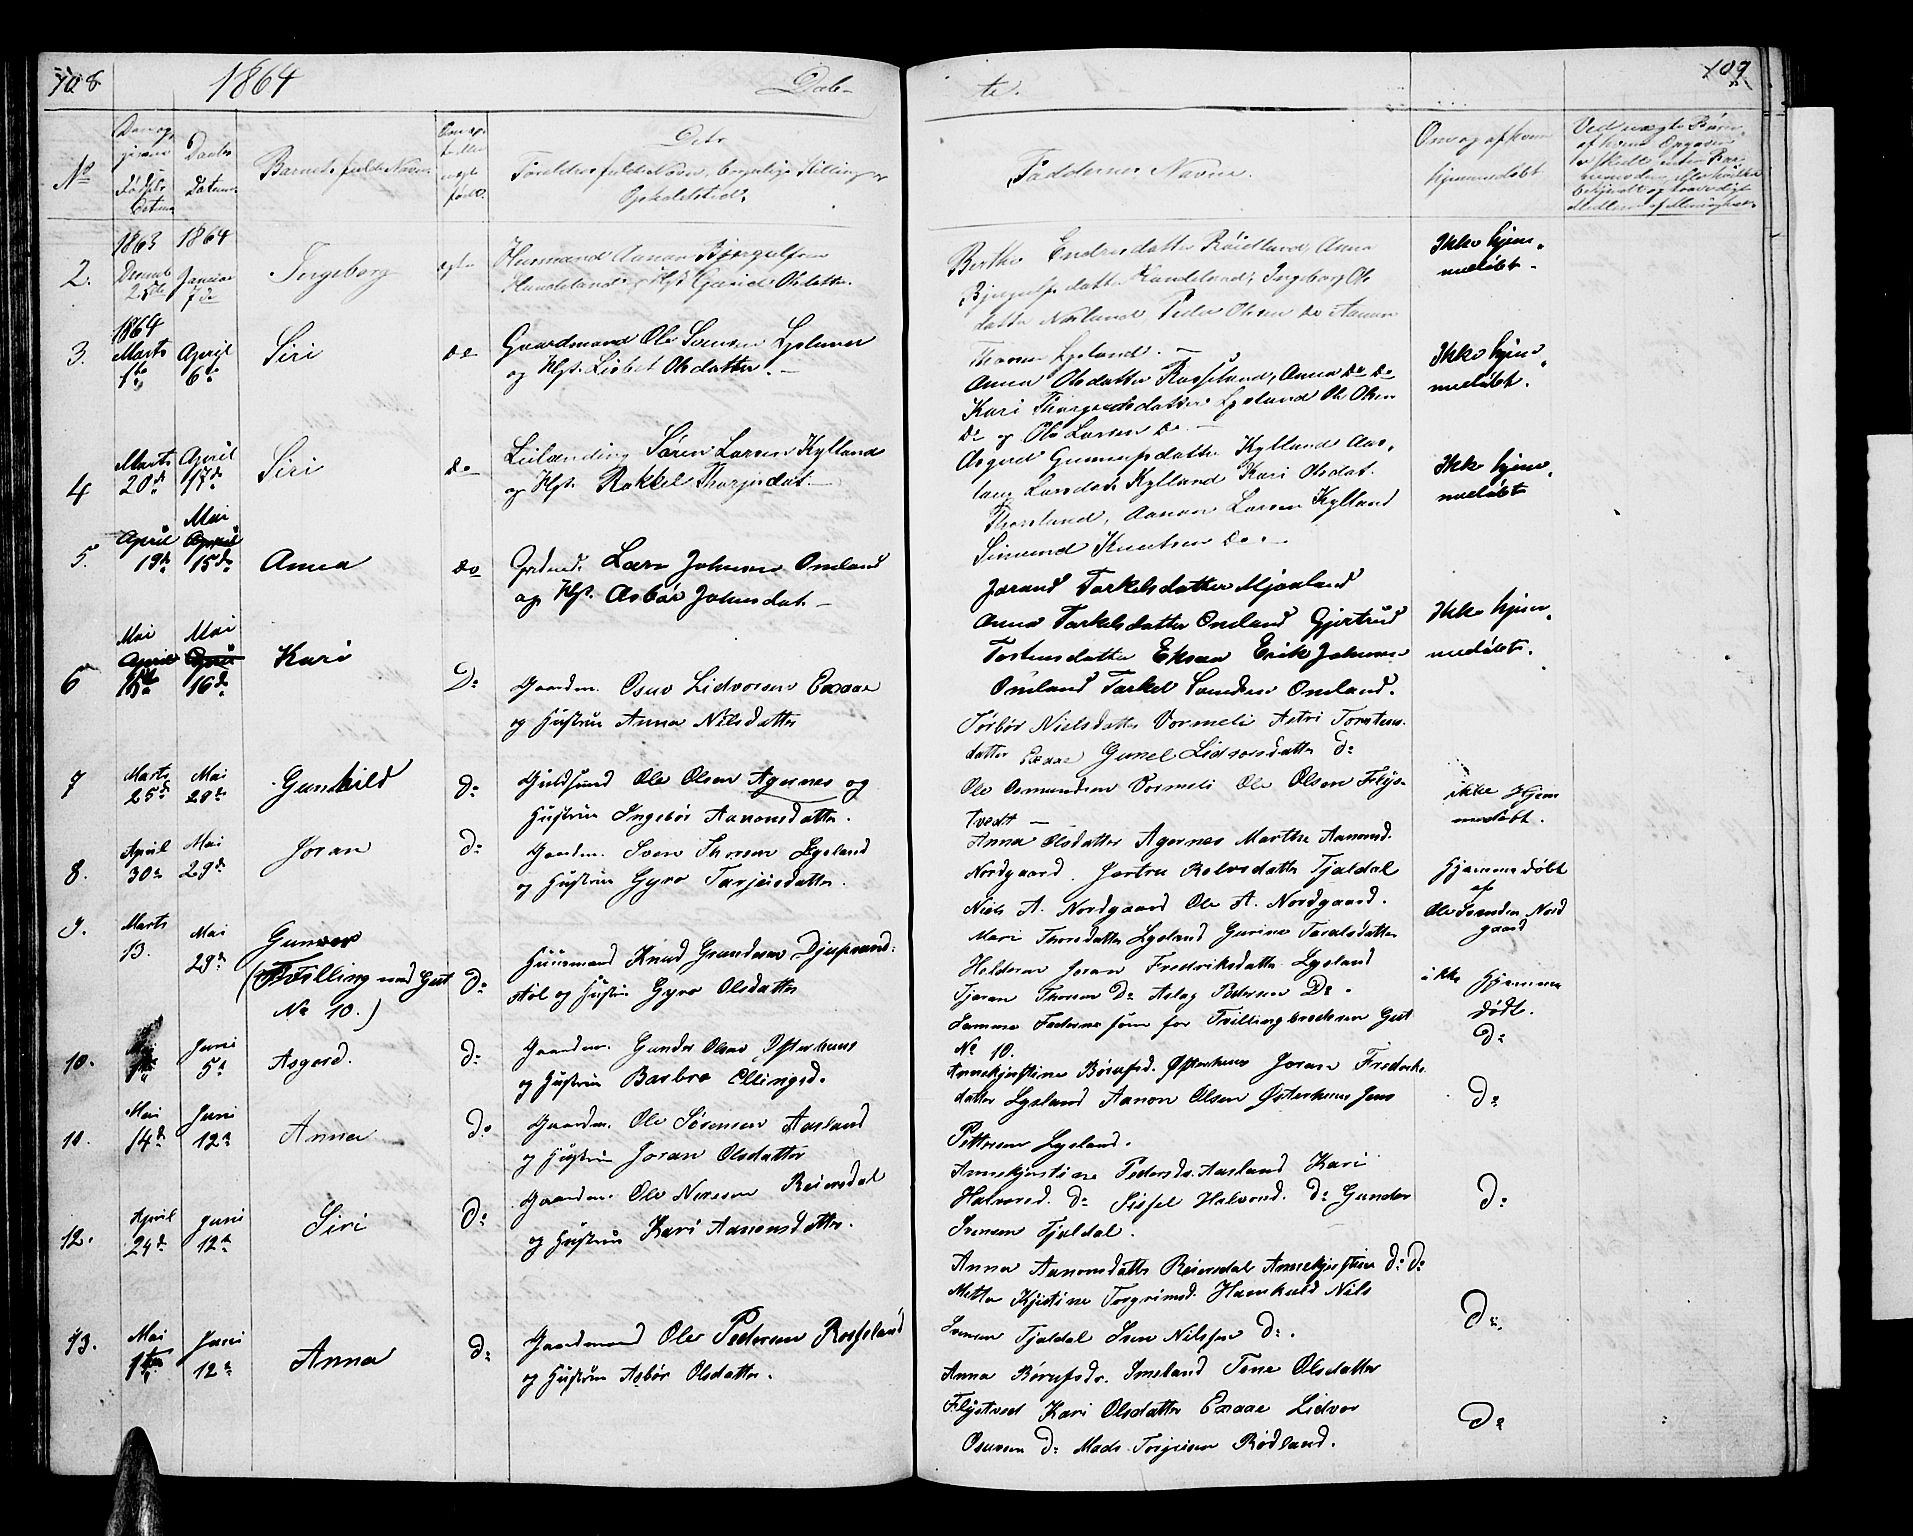 108 1864 Døb-
te. 109
No
Daabs
Datum
Barnets fulde Navn
Forældres fulde Navn, borgerlige Stilling og
Opholdssted.
Faddernes Navne.
Om og af hvem
hjemmedøbt
1863 1864
2. Decemb 25de Januar 7de Ingeborg egte Husmand Aanon Bjørgulfsen
Handeland og Hst Gurid Olsdatter.
Berthe Endresdatter Røidland, Anna
Bjørgulfsdatter Handeland, Ingeborg Ols
datter Peder Olsen do Aanon
Thorsen Lysland.
Ikke hjem-
medøbt.
1864
3. Marts 1ste April 6te Siri do Gaardmand Ole Svensen Lysland
og Hst. Lisbet Olsdatter.
Anna Olsdatter Rosseland, Anna do do
Kari Lysland Ole Olsen
do og Ole Larsen do
Ikke hjem-
medøbt.
4 Marts 20de April 17de Siri do Leilænding Søren Larsen Kylland
og Hst. Rakkel Tharjeisdat.
Asgerd Gunnufsdatter Kylland Aas-
laug Larsdatt Kylland Kari Olsdat.
Thorsland, Aanon Larsen Kylland
Simund Knutsen do
Ikke hjem-
medøbt
5. April 19de Mai 15de Anna do Grdmd. Lars Johnsen Omland
og Hst. Asbør Johnsdat.
Jorand Tarkelsdatter Mjaaland
Anna Tarkelsdatter Omland Gjertrud
Tostensdatter Eksaa Erik Johnsen
Omland Tarkel Svendsen Omland.
Ikke hjem-
medøbt.
6 Mai Mai 16de Kari Do Gaardm. Osuv Lidvorsen Exaae
og Hustrue Anna Nilsdatter
Torbør Nielsdatter Vormeli Astri Torstens-
datter Exaae Gunel Lidvorsdatter do
Ole Osmundsen Vormeli Ole Olsen Flys-
tvedt
ikke Hjem
medøbt.
7 Marts 25de Mai 29de Gunhild do Ole Olsen Agernes og
Hustrue Ingebør Aanonsdatter.
Anna Olsdatter Agernes Marthe Aanonsd.
Nordgaard. Jertru Rolvsdatter Tjaldal
Niels A. Nordgaard Ole A. Nordgaard.
Hjemmedøbt
af
Ole Svendsen Nord
gaard
8. April 30te Mai 29de Joran do Gaardm. Sven Thorsen Lysland
og Hustrue Gyro Tarjeisdatter.
Mari Thorsdatter Lysland Gurine Taralsdatter
Heldern Joran Fredriksdatter Lysland
Tjoran Thorsen do Aslag Pedersen Do.
ikke Hjemme
døbt.
9. Marts 13. Mai 29de Gunver
(Tvilling med Gut
No 10.)
do Huusmand Knud Gundersen Djupvand-
støl og Hustrue Gyro Olsdatter
Samme Faderne som for Tvillingbroderen Gut
No 10.
do
10. Mai Juni 5te Asgerd. do Gaardm. Gunder Olsen Østerhuus
og Hustrue Barbro Ellingsd.
Annekjerstine Børufsd. Østerhuus Joran Fredriks
datter Lysland Aanon Olsen Østerhuus Jens
Pettersen Lysland.
do
11. Mai 14de Juni 12te Anna do Gaardm. Ole Sørensen Aasland
og Hustrue Joran Olsdatter
Annekjerstine Pedersdr. Aasland Kari
Halvorsd. do Sissel Halvorsd. do Gunder
Svensen Tjaldal.
do
12. April 24de Juni 12te Siri do Gaardm. Ole Nilssen Reiersdal
og Hustrue Kari Aanonsdatter.
Anna Aanonsdatter Reiersdal Annekjerstine do do
Mette Kjistine Torgrimsd. Haankald Nils
Svensen Tjaldal Sven Nilssen do.
do
13. Mai 1ste Juni 12te Anna do Gaardmand Ole Pedersen Rosseland
og Hustrue Asbør Olsdatter.
Anna Børufsdr. Smeland Tone Olsdatter
Flystved Kari Olsdatter Exaae Lidvor
Osuvsen do Mads Torjeisen Rødland.
do